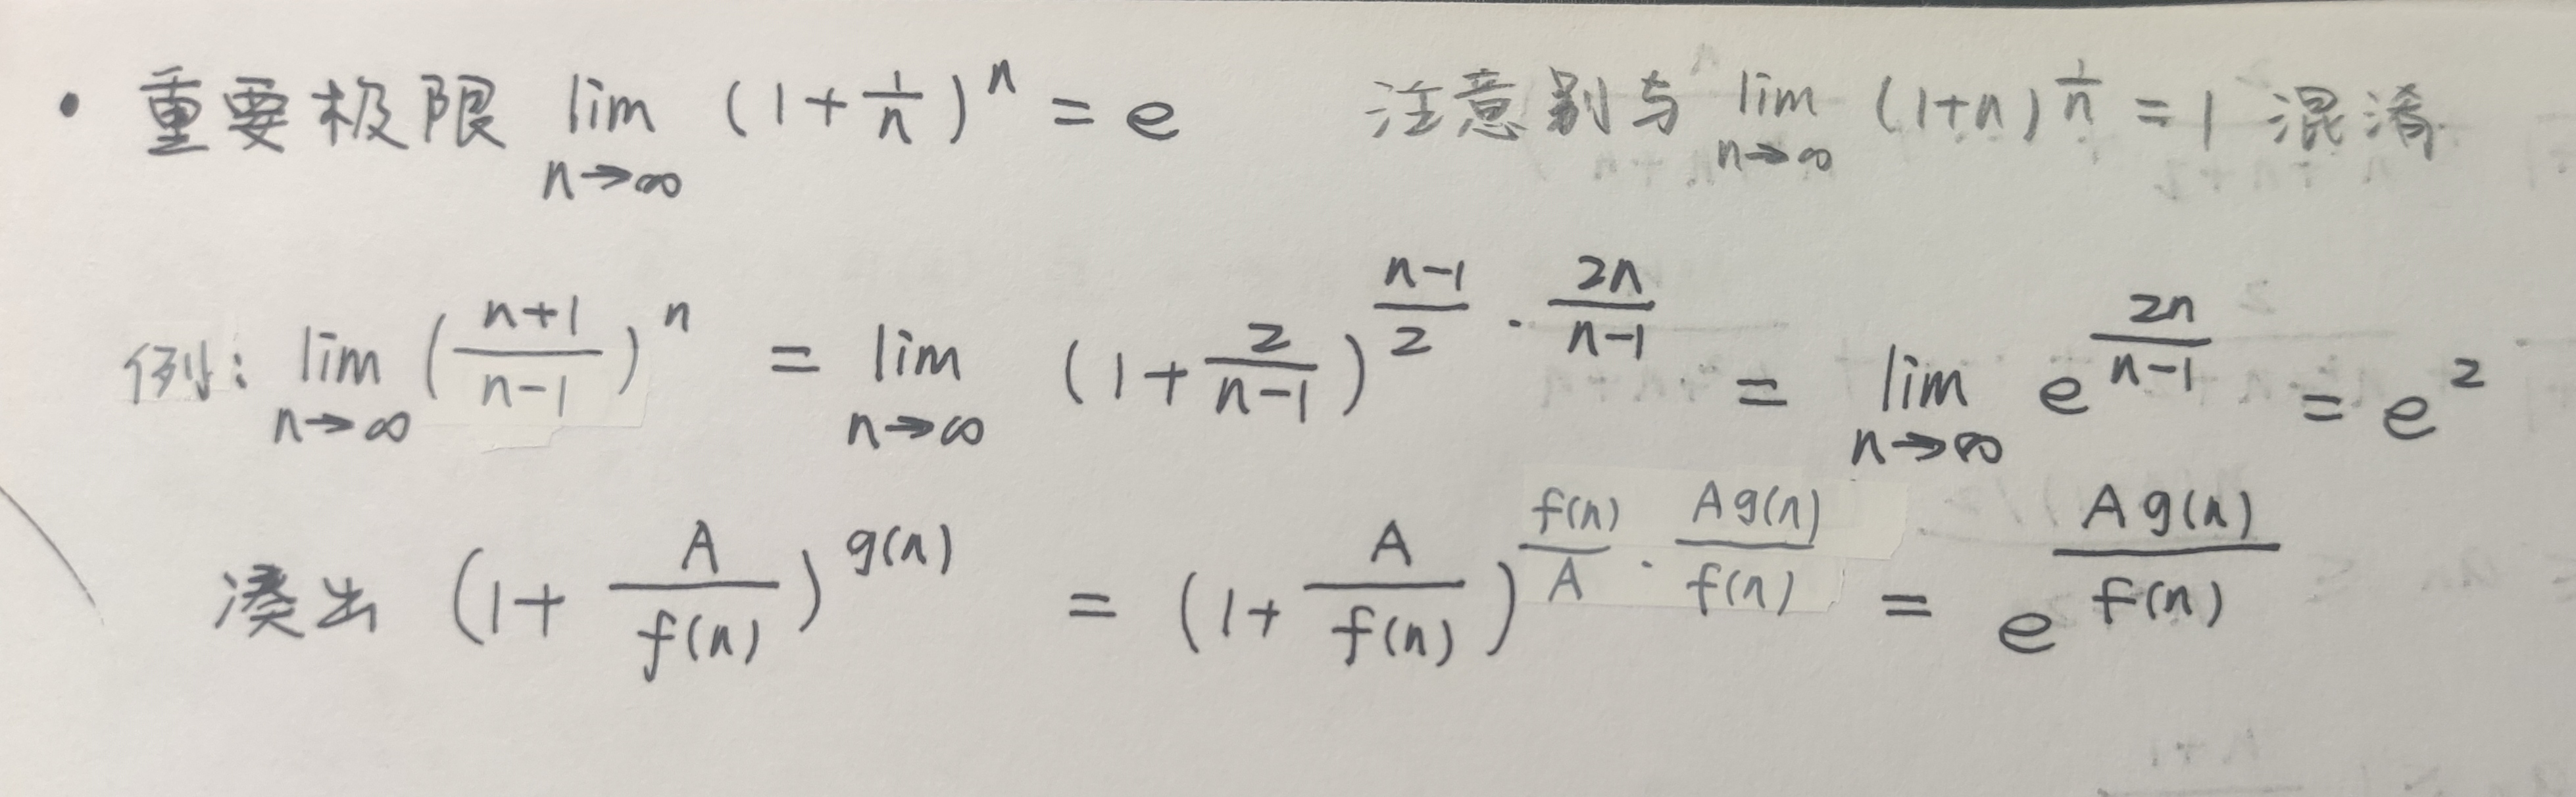 · 重要极限 lim_{n→∞} (1+1/n)^n = e 注意别与 lim_{n→∞} (1+n)^{1/n} = 1 混淆.
例: lim_{n→∞} ((n+1)/(n-1))^n = lim_{n→∞} (1+2/(n-1))^{(n-1)/2 · 2n/(n-1)} = lim_{n→∞} e^{2n/(n-1)} = e^2
凑出 (1+A/f(n))^{g(n)} = (1+A/f(n))^{f(n)/A · Ag(n)/f(n)} = e^{Ag(n)/f(n)}